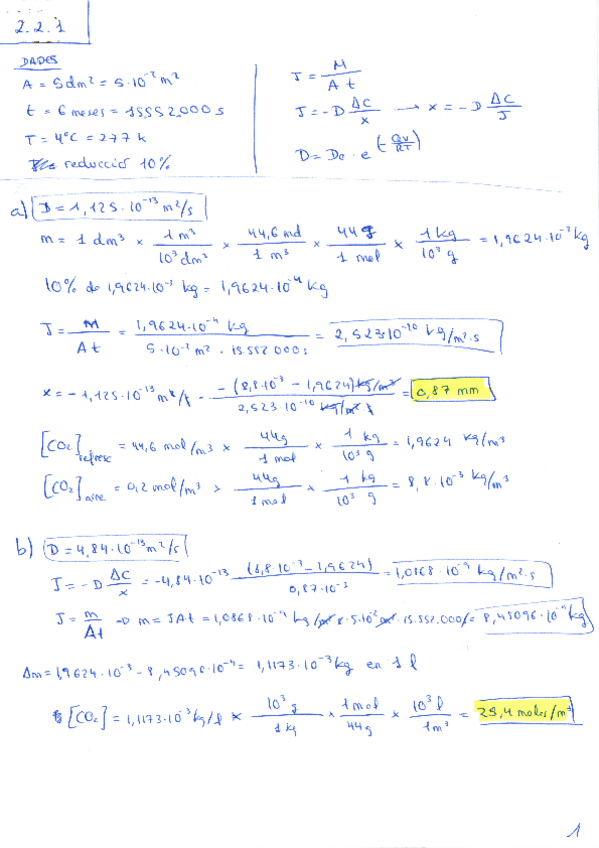 2.2.1
DADES
A = 5dm² = 5·10⁻² m²
t = 6 meses = 15552.000 s
T = 4°C = 277 k
reducció 10%
J = M / A t
J = -D ΔC/x → x = -D ΔC/J
D = D₀ · e^(-Qv/RT)
a) D = 1,125·10⁻¹³ m²/s
m = 1 dm³ × 1 m³ / 10³ dm³ × 44,6 mol / 1 m³ × 44 g / 1 mol × 1 kg / 10³ g = 1,9624·10⁻³ kg
10% de 1,9624·10⁻³ kg = 1,9624·10⁻⁴ kg
J = M / A t = 1,9624·10⁻⁴ kg / 5·10⁻² m² · 15.552 000 s = 2,523·10⁻¹⁰ kg/m²·s
x = -1,125·10⁻¹³ m²/s · -(8,8·10⁻³ - 1,9624) kg/m³ / 2,523·10⁻¹⁰ kg/m² s = 0,87 mm
[CO₂] refresc = 44,6 mol/m³ × 44g / 1 mol × 1 kg / 10³ g = 1,9624 kg/m³
[CO₂] aire = 0,2 mol/m³ × 44g / 1 mol × 1 kg / 10³ g = 8,8·10⁻³ kg/m³
b) D = 4,84·10⁻¹³ m²/s
J = -D ΔC/x = -4,84·10⁻¹³ (8,8·10⁻³ - 1,9624) / 0,87·10⁻³ = 1,0868·10⁻⁹ kg/m²·s
J = m / At → m = JAt = 1,0868·10⁻⁹ kg/m² s · 5·10⁻² m² · 15.552.000 s = 8,45096·10⁻⁴ kg
Δm = 1,9624·10⁻³ - 8,45096·10⁻⁴ = 1,1173·10⁻³ kg en 1 l
[CO₂] = 1,1173·10⁻³ kg/l × 10³ g / 1 kg × 1 mol / 44g × 10³ l / 1 m³ = 25,4 moles/m³
1